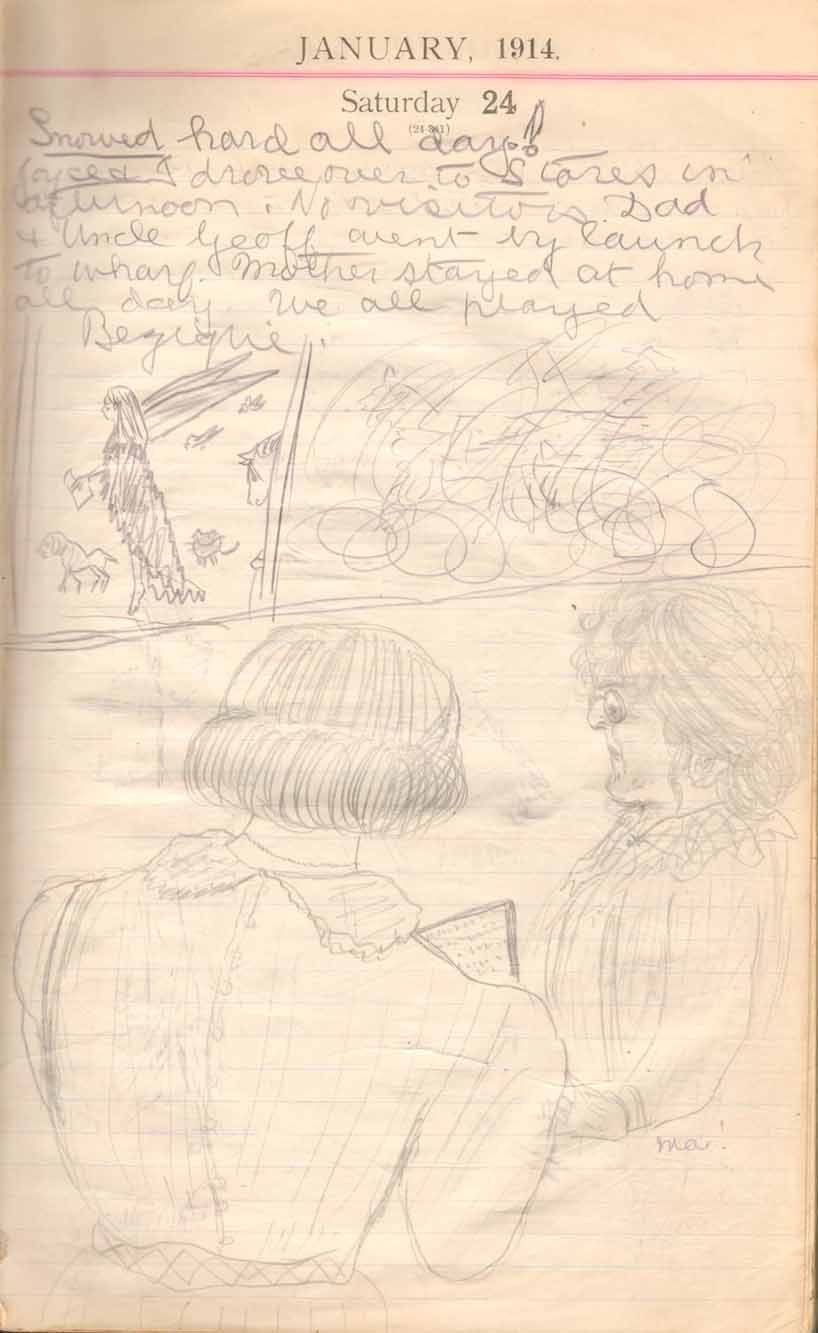 JANUARY, 1914.
Saturday 24
(24-341)
Snowed hard all day!
Joyce & I drove over to Stores in
afternoon. No visitors. Dad
& Uncle Geoff went by launch
to wharf. Mother stayed at home
all day. We all played
Bezique.
me!